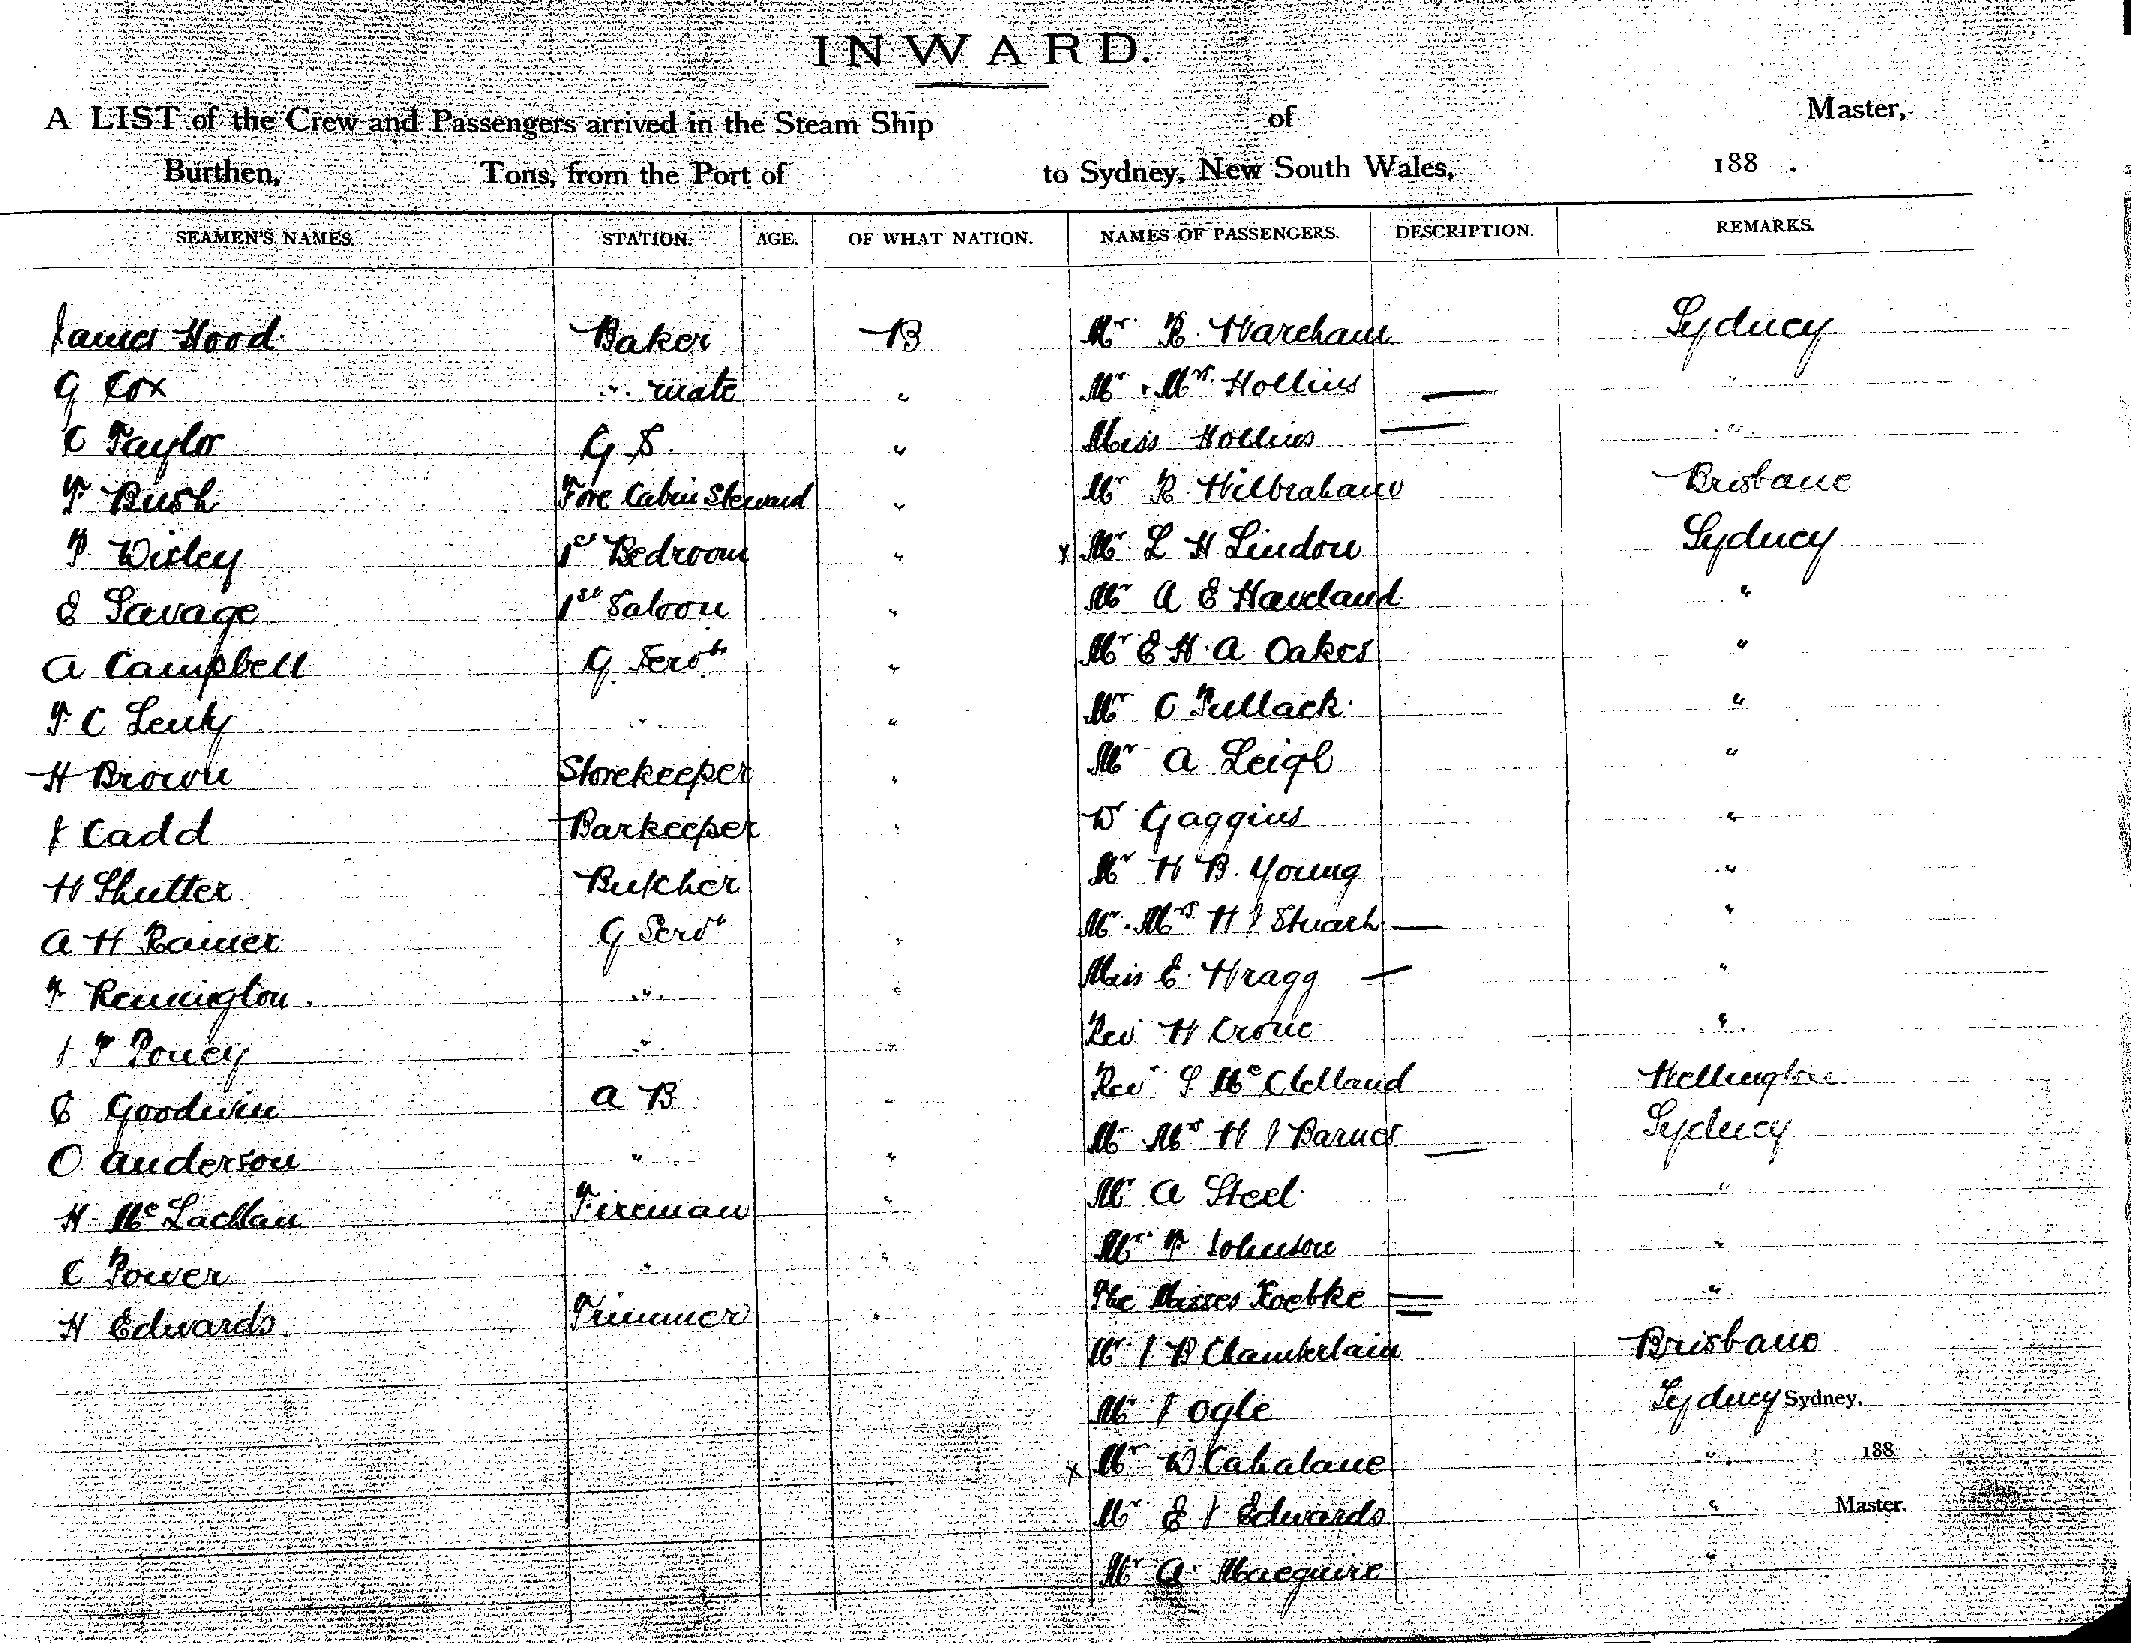 INWARD.
A LIST of the Crew and Passengers arrived in the Steam Ship of Master,
Burthen, Tons, from the Port of to Sydney, New South Wales, 188 .
SEAMEN'S NAMES. STATION. AGE. OF WHAT NATION. NAMES OF PASSENGERS. DESCRIPTION. REMARKS.
James Hood Baker B Mr R. Wareham Sydney
G Cox " mate " Mr & Mrs Hollins — "
C Taylor G S. " Miss Hollins — "
F Bush Fore Cabin Steward " Mr R. Wilbraham Brisbane
P Wisley 1st Bedroom " x Mr L H Lindon Sydney
E Savage 1st Saloon " Mr A E Haveland "
A Campbell G. Servt " Mr E H. A Oakes "
F C Lenty " " Mr C Pullack "
H Brown Storekeeper " Mr A Leigh "
J Cadd Barkeeper " W Gaggins "
H Shutter Butcher Mr H B. Young "
A H Rainer G Servt " Mr & Mrs H J Stuart — "
F Rennington. " " Miss E. Wragg — "
J F Poney " " Rev H Crone "
E Goodwin A B " Rev S McClelland Wellington
O Anderson " " Mr Mrs H J Barnes — Sydney
H McLachlan Fireman " Mr A Steel "
C Power " " Mr F Johnson "
H Edwards Trimmer " The Misses Koebke = "
Mr J B Chamberlain Brisbane
Mr J Ogle Sydney Sydney,
x Mr W Cahalane " 188
Mr E J Edwards " Master.
Mr A. Macquire "